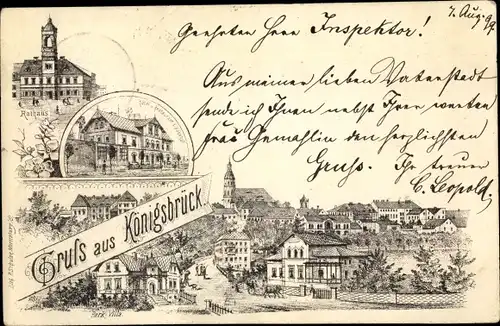 7. Aug. 97
Geehrter Herr Inspektor!
Aus meiner lieben Vaterstadt
sende ich Ihnen nebst Ihrer werten
Frau Gemahlin den herzlichsten
Gruss. Ihr treuer
C. Leopold.
Rathaus
Gruss aus Königsbrück
Park Villa